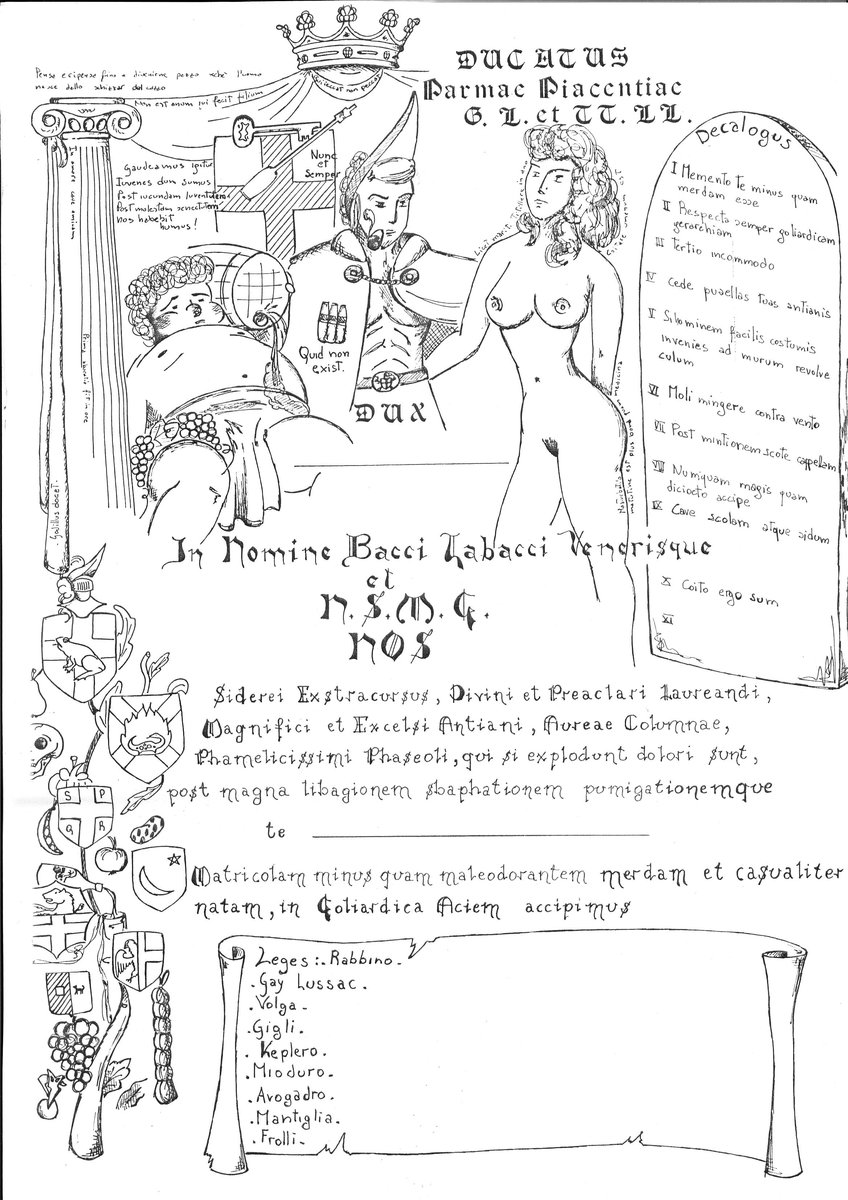 DUCATUS
Parmae Piacentiae
G. L. et TT. LL.
Non est enum qui fecit filium
Gaudeamus igitur
Iuvenes dun sumus
Post iucundam Iuventutem
Post molestam senectutem
Nos habebit
humus!
Nunc
et
Semper
Quid non
exist.
DUX
Gallus docet.
Decalogus
I Memento te minus quam
merdam esse
II Respecta semper goliardicam
gerarchiam
III Tertio incommodo
IV Cede puaellas tuas antianis
V
facilis costumis
invenies ad murum revolve
culum
VI Moli mingere contra vento
VII Post mintionem scote cappellam
VIII Numquam magis quam
diciocto accipe
IX Cave scolam atque sidum
X Coito ergo sum
XI
In Nomine Bacci Tabacci Venerisque
et
N.S.M.G.
NOS
Siderei Exstracursus, Divini et Preaclari Laureandi,
Magnifici et Excelsi Antiani, Aureae Columnae,
Phamelicissimi Phaseoli, qui si explodunt dolori sunt,
post magna libagionem sbaphationem pumigationemque
te
Matricolam minus quam maleodorantem merdam et casualiter
natam, in Goliardica Aciem accipimus
S P
Q R
Leges:. Rabbino.
. Gay Lussac.
. Volga.
. Gigli.
. Keplero.
. Mioduro.
. Avogadro.
. Mantiglia.
. Frolli.